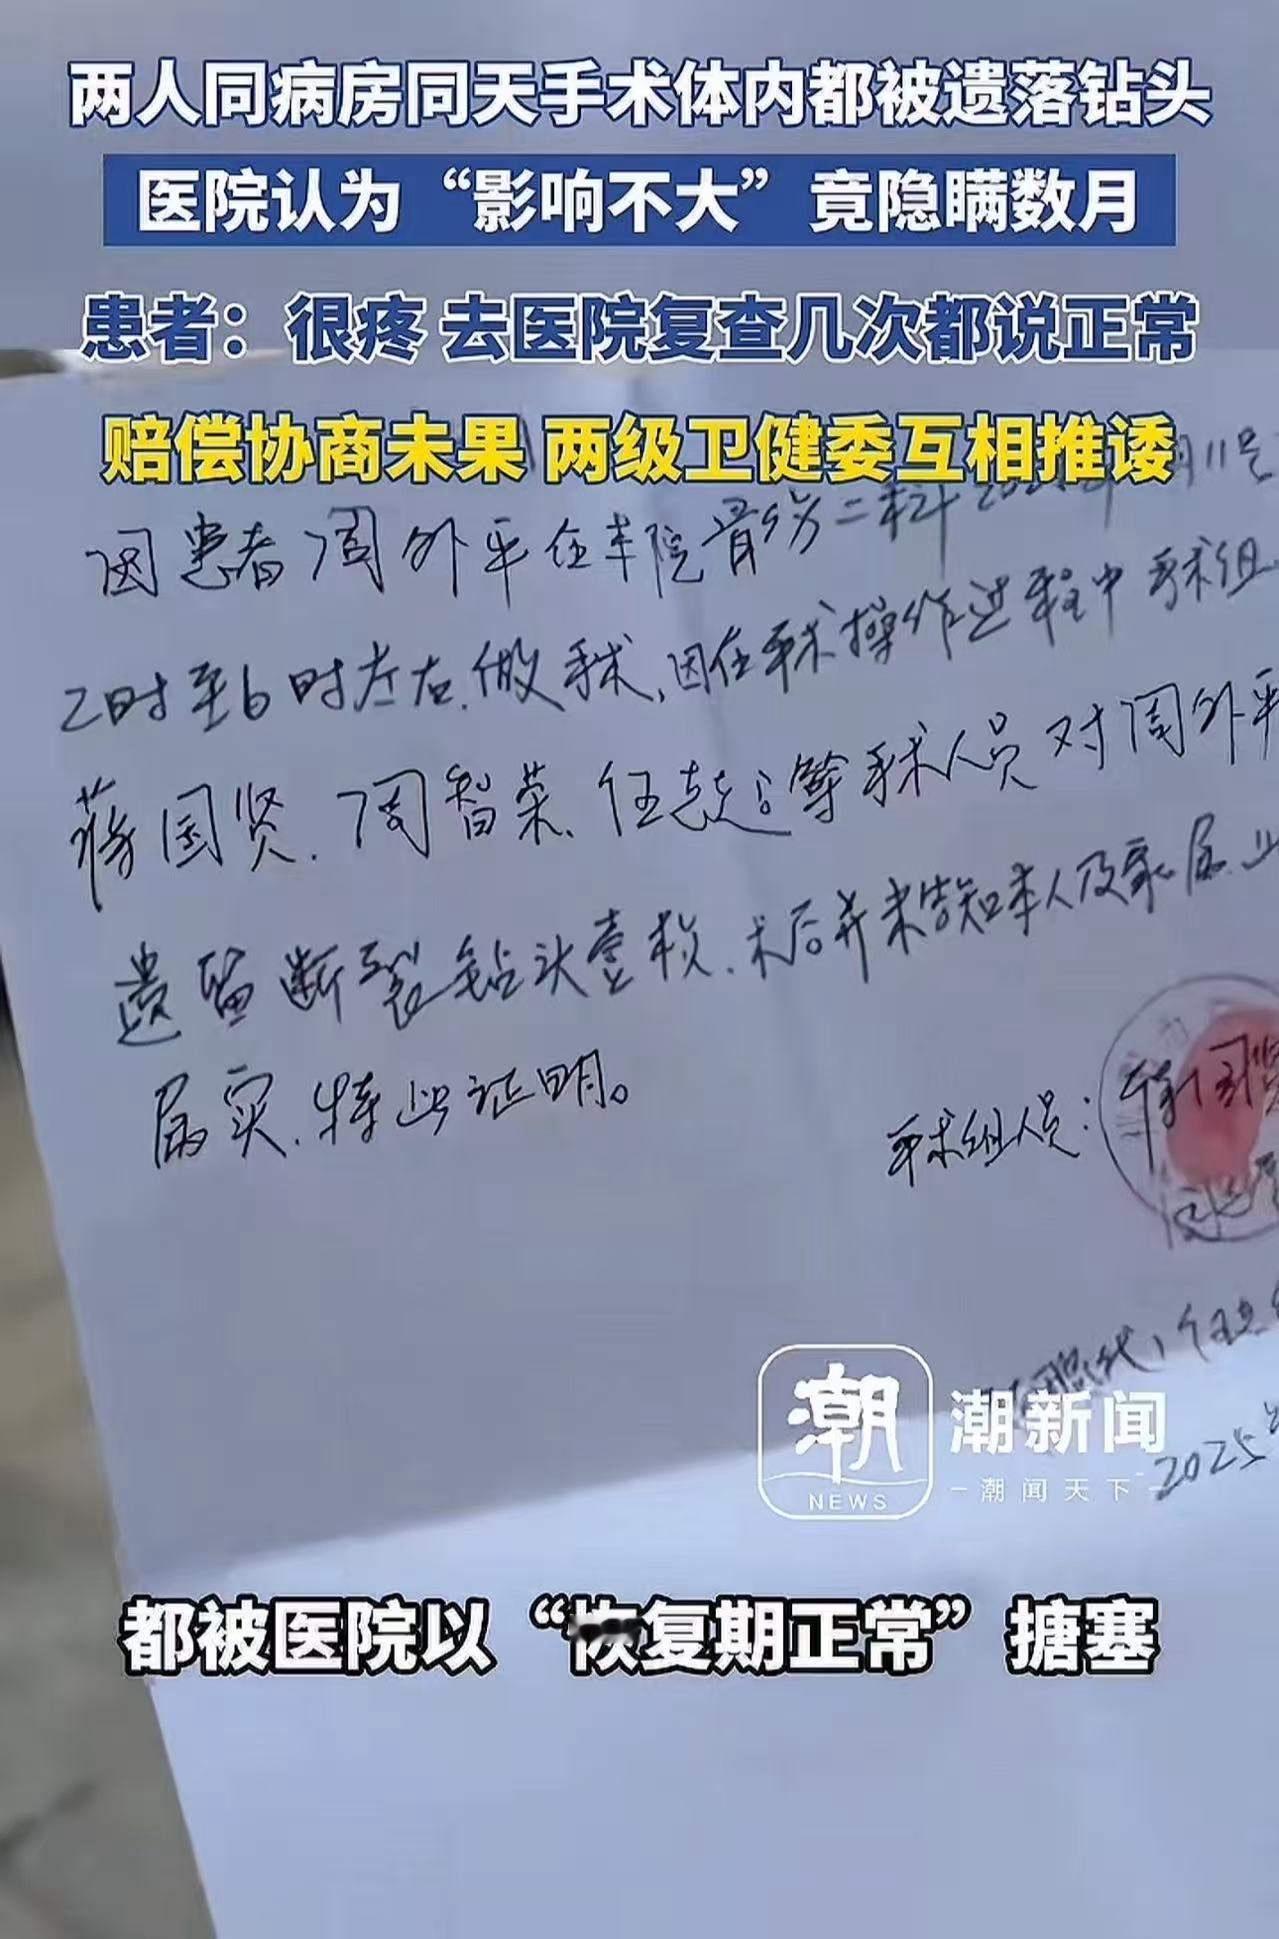 两人同病房同天手术体内都被遗落钻头
医院认为“影响不大”竟隐瞒数月
患者：很疼 去医院复查几次都说正常
赔偿协商未果 两级卫健委互相推诿
因患者周外平在本院骨伤二科 月11号
2时至6时左右.做手术,因在手术操作过程中手术组
蒋国贤.周智荣.任 等手术人员对周外平
遗留断裂钻头壹枚.术后并未告知本人及家属.
属实.特此证明。
手术组人员：蒋国贤
潮
NEWS
潮新闻
潮闻天下
2025年
都被医院以“恢复期正常”搪塞